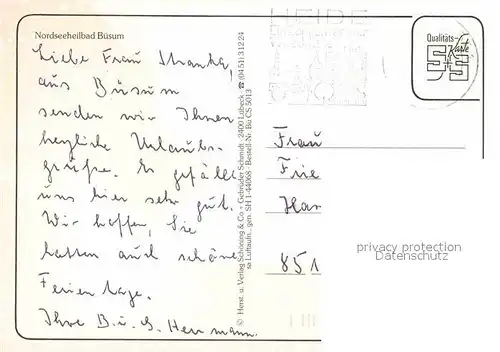 Nordseeheilbad Büsum
Liebe Frau
aus Büsum
senden wir Ihnen
herzliche Urlaubs-
grüße. Es gefällt
uns hier sehr gut.
Wir hoffen, Sie
hatten auch schöne
Ferientage.
Ihre B. u. G. Herrmann.
© Herst. u. Verlag Schöning & Co + Gebrüder Schmidt · 2400 Lübeck · ☎ (04 51) 3 12 24
sa Luftaufn., gen. SH 1-44068 · Bestell-Nr. Bü CS 5013
HEIDE
Qualitäts-
Karte
Frau
Frie
Han
851
privacy protection
Datenschutz